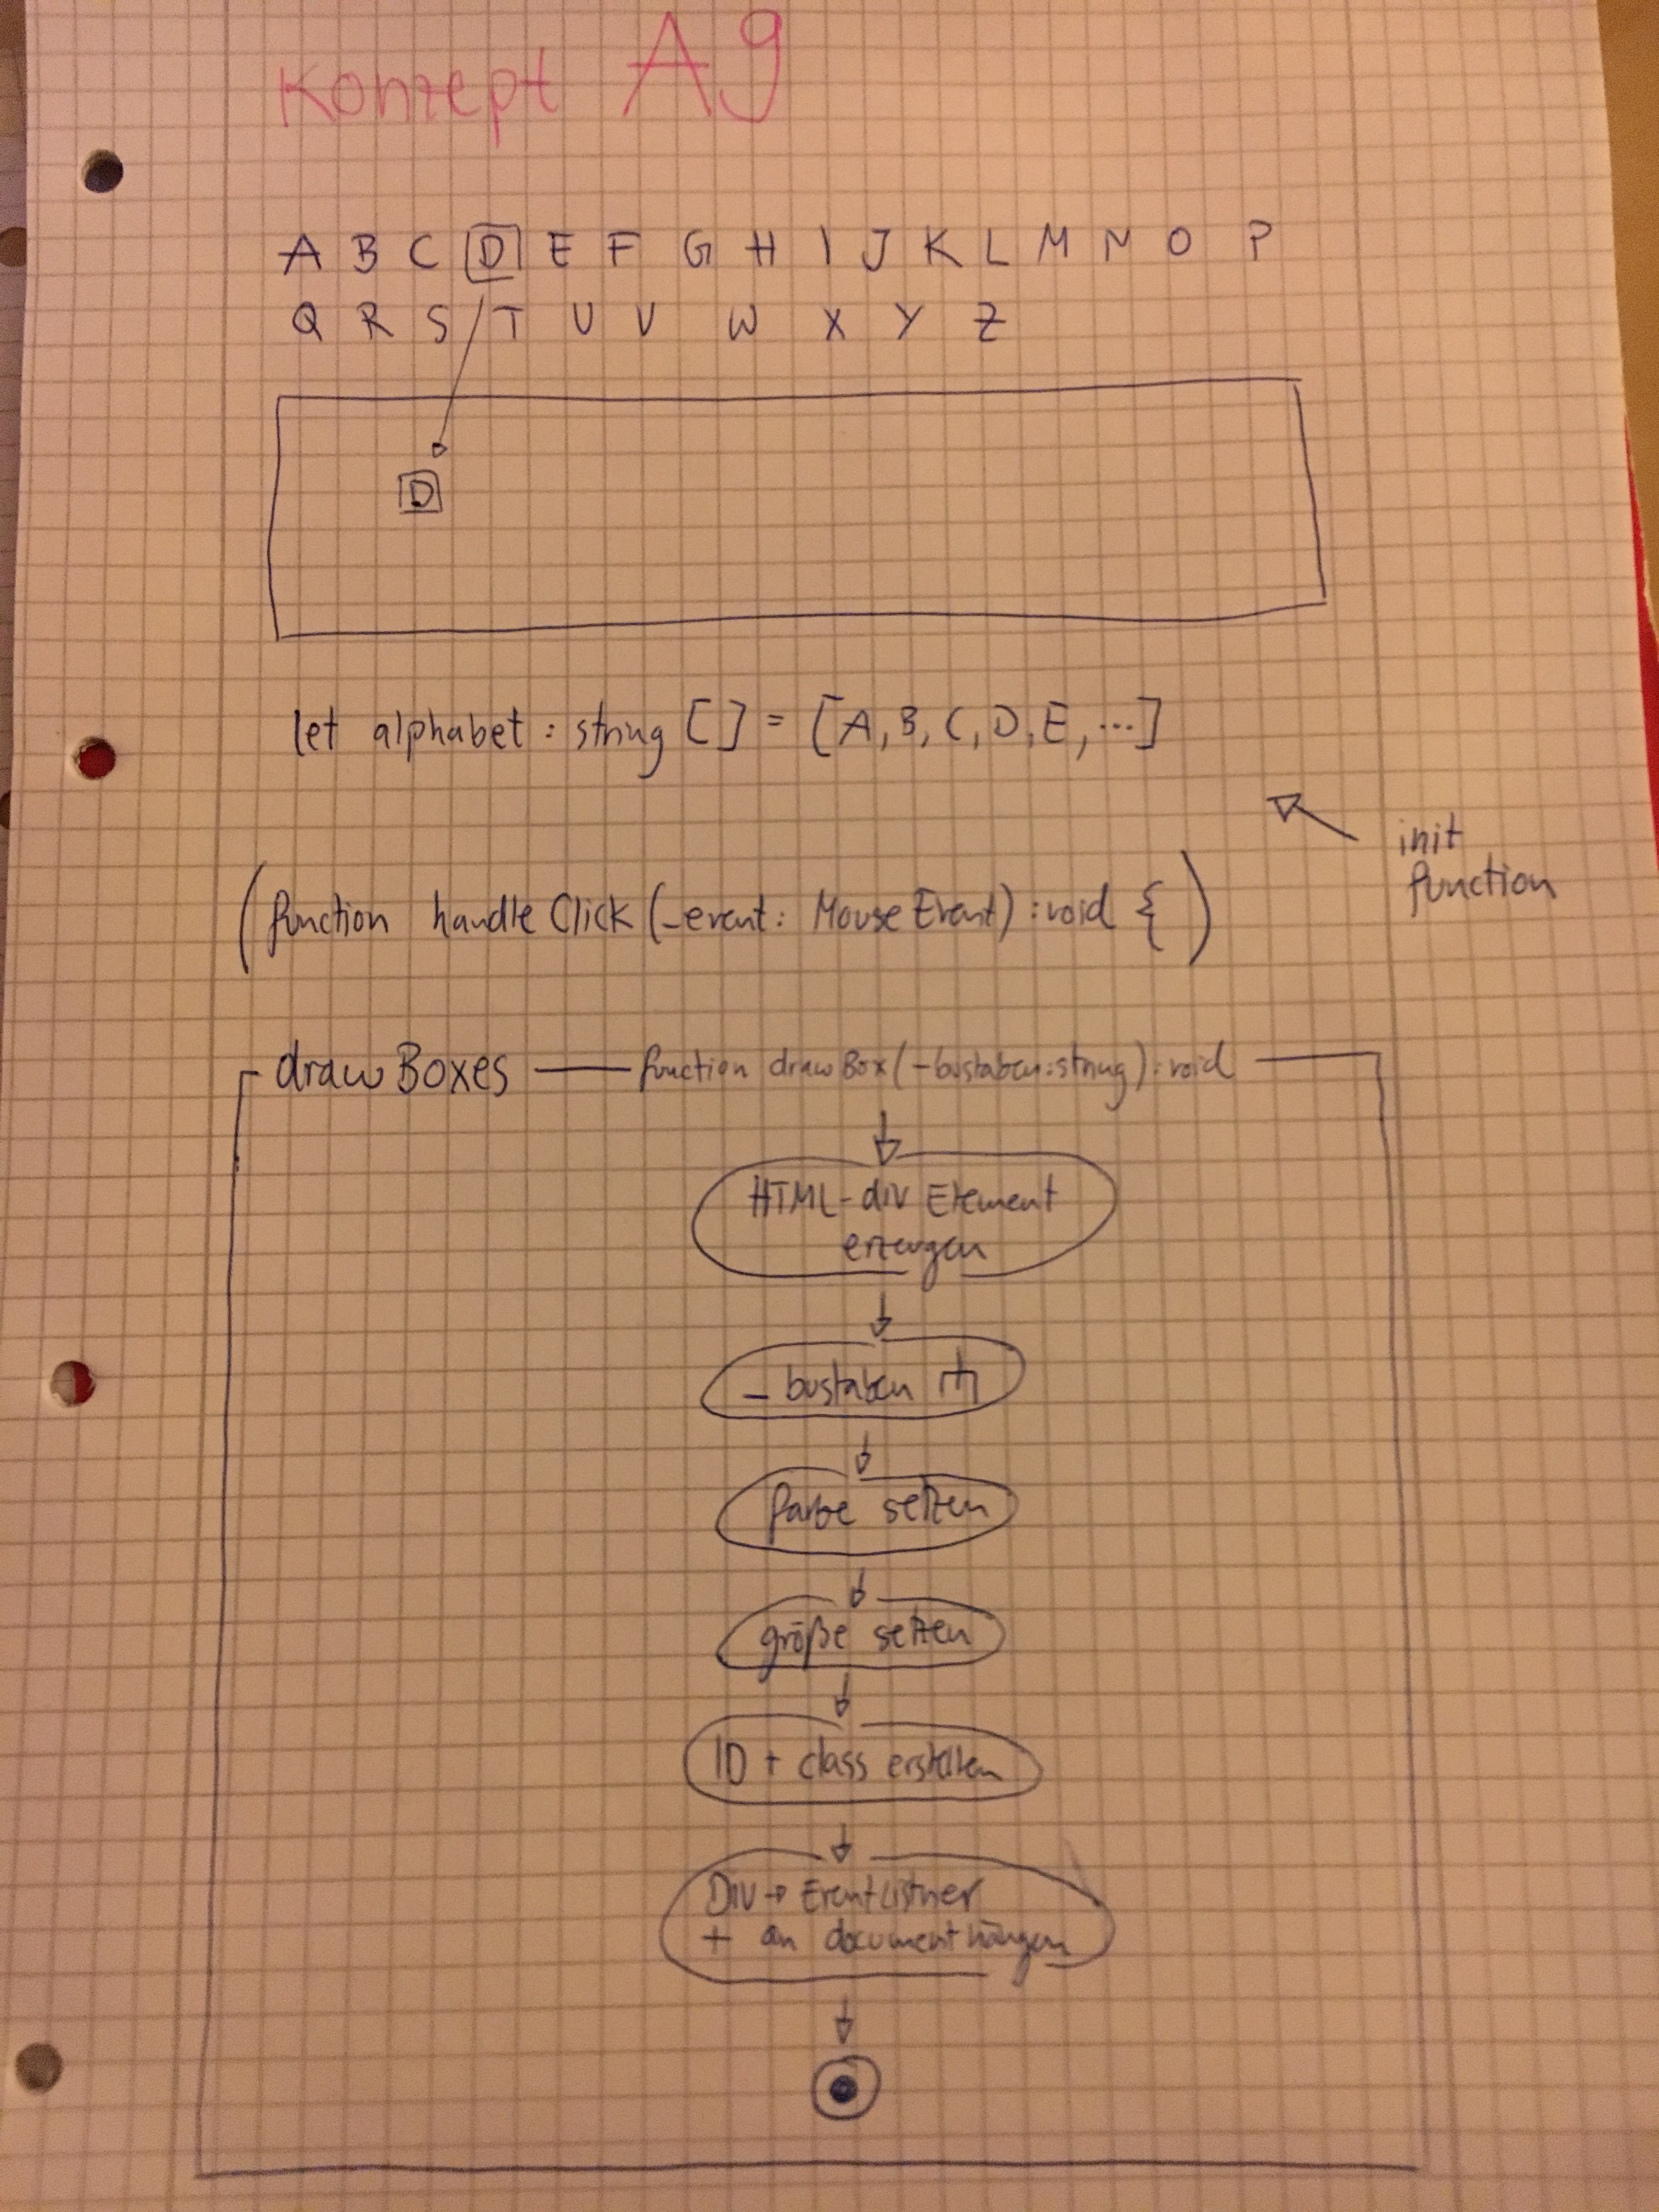 Konzept A9
A B C D E F G H I J K L M N O P
Q R S T U V W X Y Z
D
let alphabet : string [] = [A, B, C, D, E, ...]
init
function
(function handleClick (_event: MouseEvent) : void { )
drawBoxes — function drawBox (_bustaben:string) : void
HTML-div Element
erzeugen
_ bustaben
farbe setzen
größe setzen
ID + class erstellen
DIV → EventListner
+ an document hängen